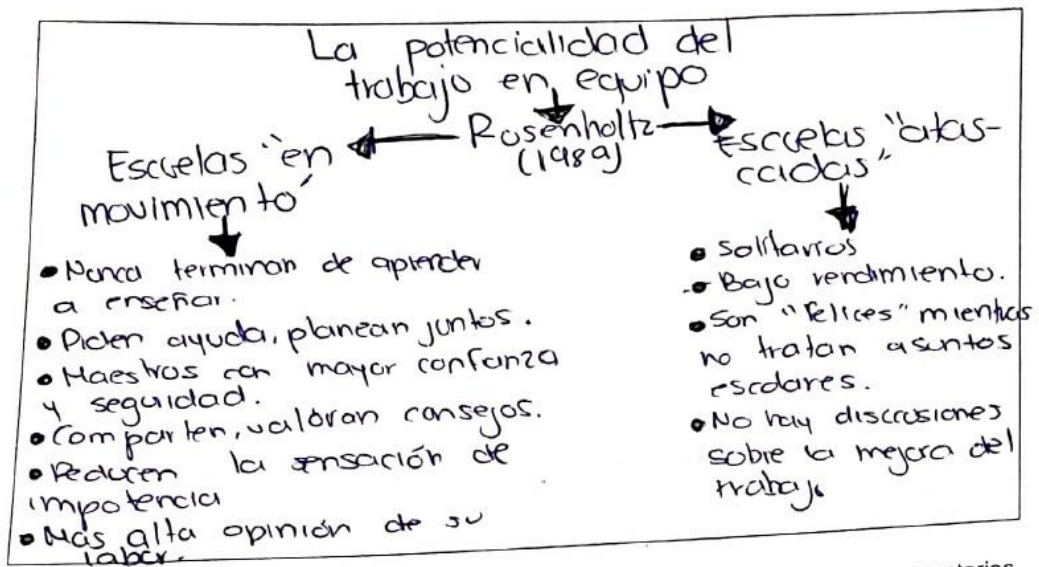 La potencialidad del
trabajo en equipo
Rosenholtz
(1989)
Escuelas "en
movimiento"
• Nunca terminan de aprender
a enseñar.
• Piden ayuda, planean juntos.
• Maestros con mayor confianza
y seguidad.
• Comparten, valoran consejos.
• Reducen la sensación de
impotencia
• Más alta opinión de su
labor.
Escuelas "atas-
cadas"
• Solitarios
• Bajo rendimiento.
• Son "felices" mientras
no tratan asuntos
escolares.
• No hay discusiones
sobre la mejora del
trabajo